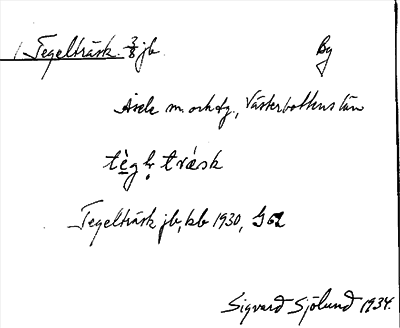 Tegelträsk 2/8 jb. By
Åsele m. och tg., Västerbottens län
tègḷ trä́sk
Tegelträsk jb, kb 1930, G 62
Sigvard Sjölund 1934.